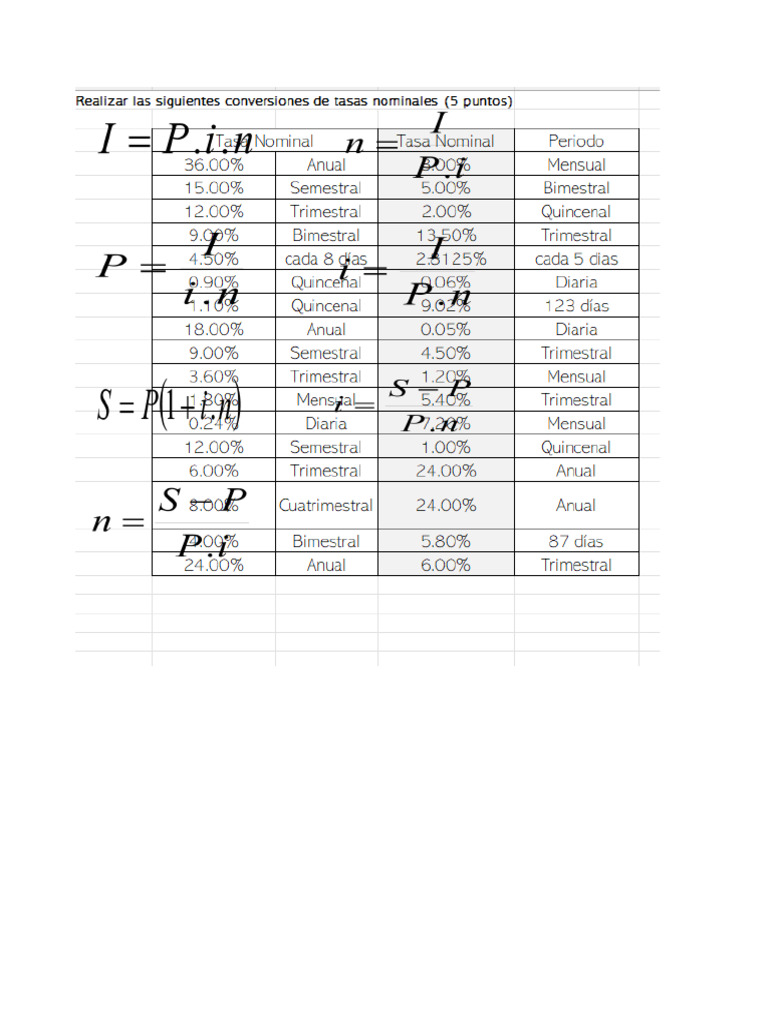 Realizar las siguientes conversiones de tasas nominales (5 puntos)
I = P.i.n
n = I / P.i
Tasa Nominal Tasa Nominal Periodo
36.00% Anual 3.00% Mensual
15.00% Semestral 5.00% Bimestral
12.00% Trimestral 2.00% Quincenal
9.00% Bimestral 13.50% Trimestral
P = I / i.n
i = I / P.n
4.50% cada 8 días 2.8125% cada 5 dias
0.90% Quincenal 0.06% Diaria
1.10% Quincenal 9.02% 123 días
18.00% Anual 0.05% Diaria
9.00% Semestral 4.50% Trimestral
3.60% Trimestral 1.20% Mensual
S = P(1+i.n)
i = S − P / P.n
1.80% Mensual 5.40% Trimestral
0.24% Diaria 7.20% Mensual
12.00% Semestral 1.00% Quincenal
6.00% Trimestral 24.00% Anual
n = S − P / P.i
8.00% Cuatrimestral 24.00% Anual
4.00% Bimestral 5.80% 87 días
24.00% Anual 6.00% Trimestral